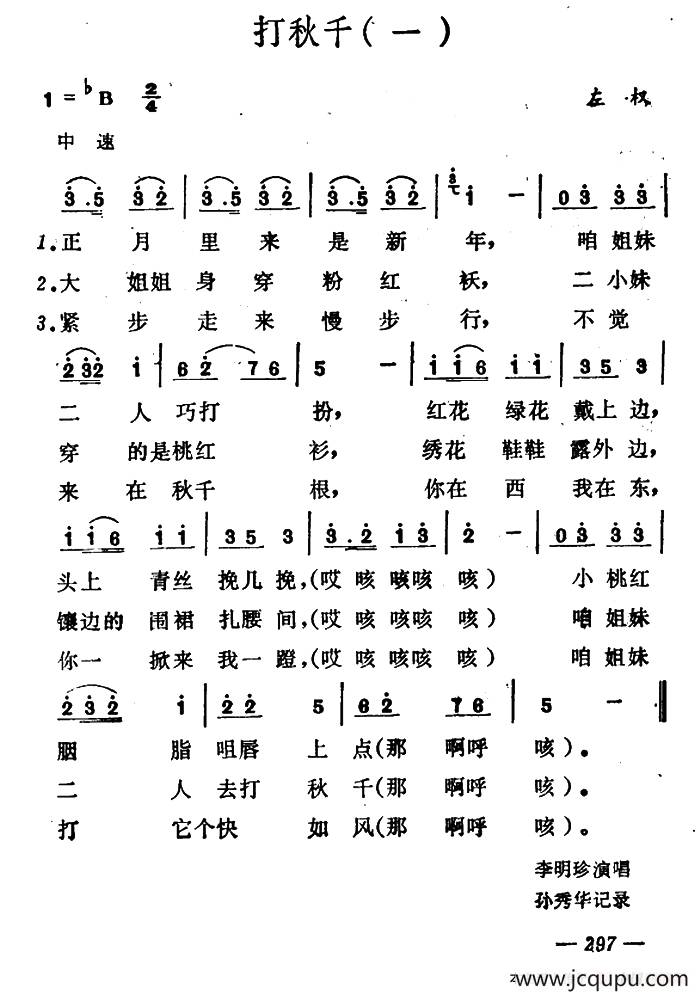 打秋千(一)
1=♭B 2/4 左权
中速
3.5 3 2 | 3.5 3 2 | 3.5 3 2 | 3 i — | 0 3 3 3 |
1.正月里来是新年，咱姐妹
2.大姐姐身穿粉红袄，二小妹
3.紧步走来慢步行，不觉
2 3 2 i | 6 2 7 6 | 5 — | i i 6 i i | 3 5 3 |
二人巧打扮，红花绿花戴上边，
穿的是桃红衫，绣花鞋鞋露外边，
来在秋千根，你在西我在东，
i i 6 i i | 3 5 3 | 3.2 i 3 | 2 — | 0 3 3 3 |
头上青丝挽几挽，(哎咳咳咳咳)小桃红
镶边的围裙扎腰间，(哎咳咳咳咳)咱姐妹
你一掀来我一蹬，(哎咳咳咳咳)咱姐妹
2 3 2 i | 2 2 5 | 6 2 7 6 | 5 — ‖
胭脂咀唇上点(那啊呼咳)。
二人去打秋千(那啊呼咳)。
打它个快如风(那啊呼咳)。
李明珍演唱
孙秀华记录
— 297 —
www.jcqupu.com